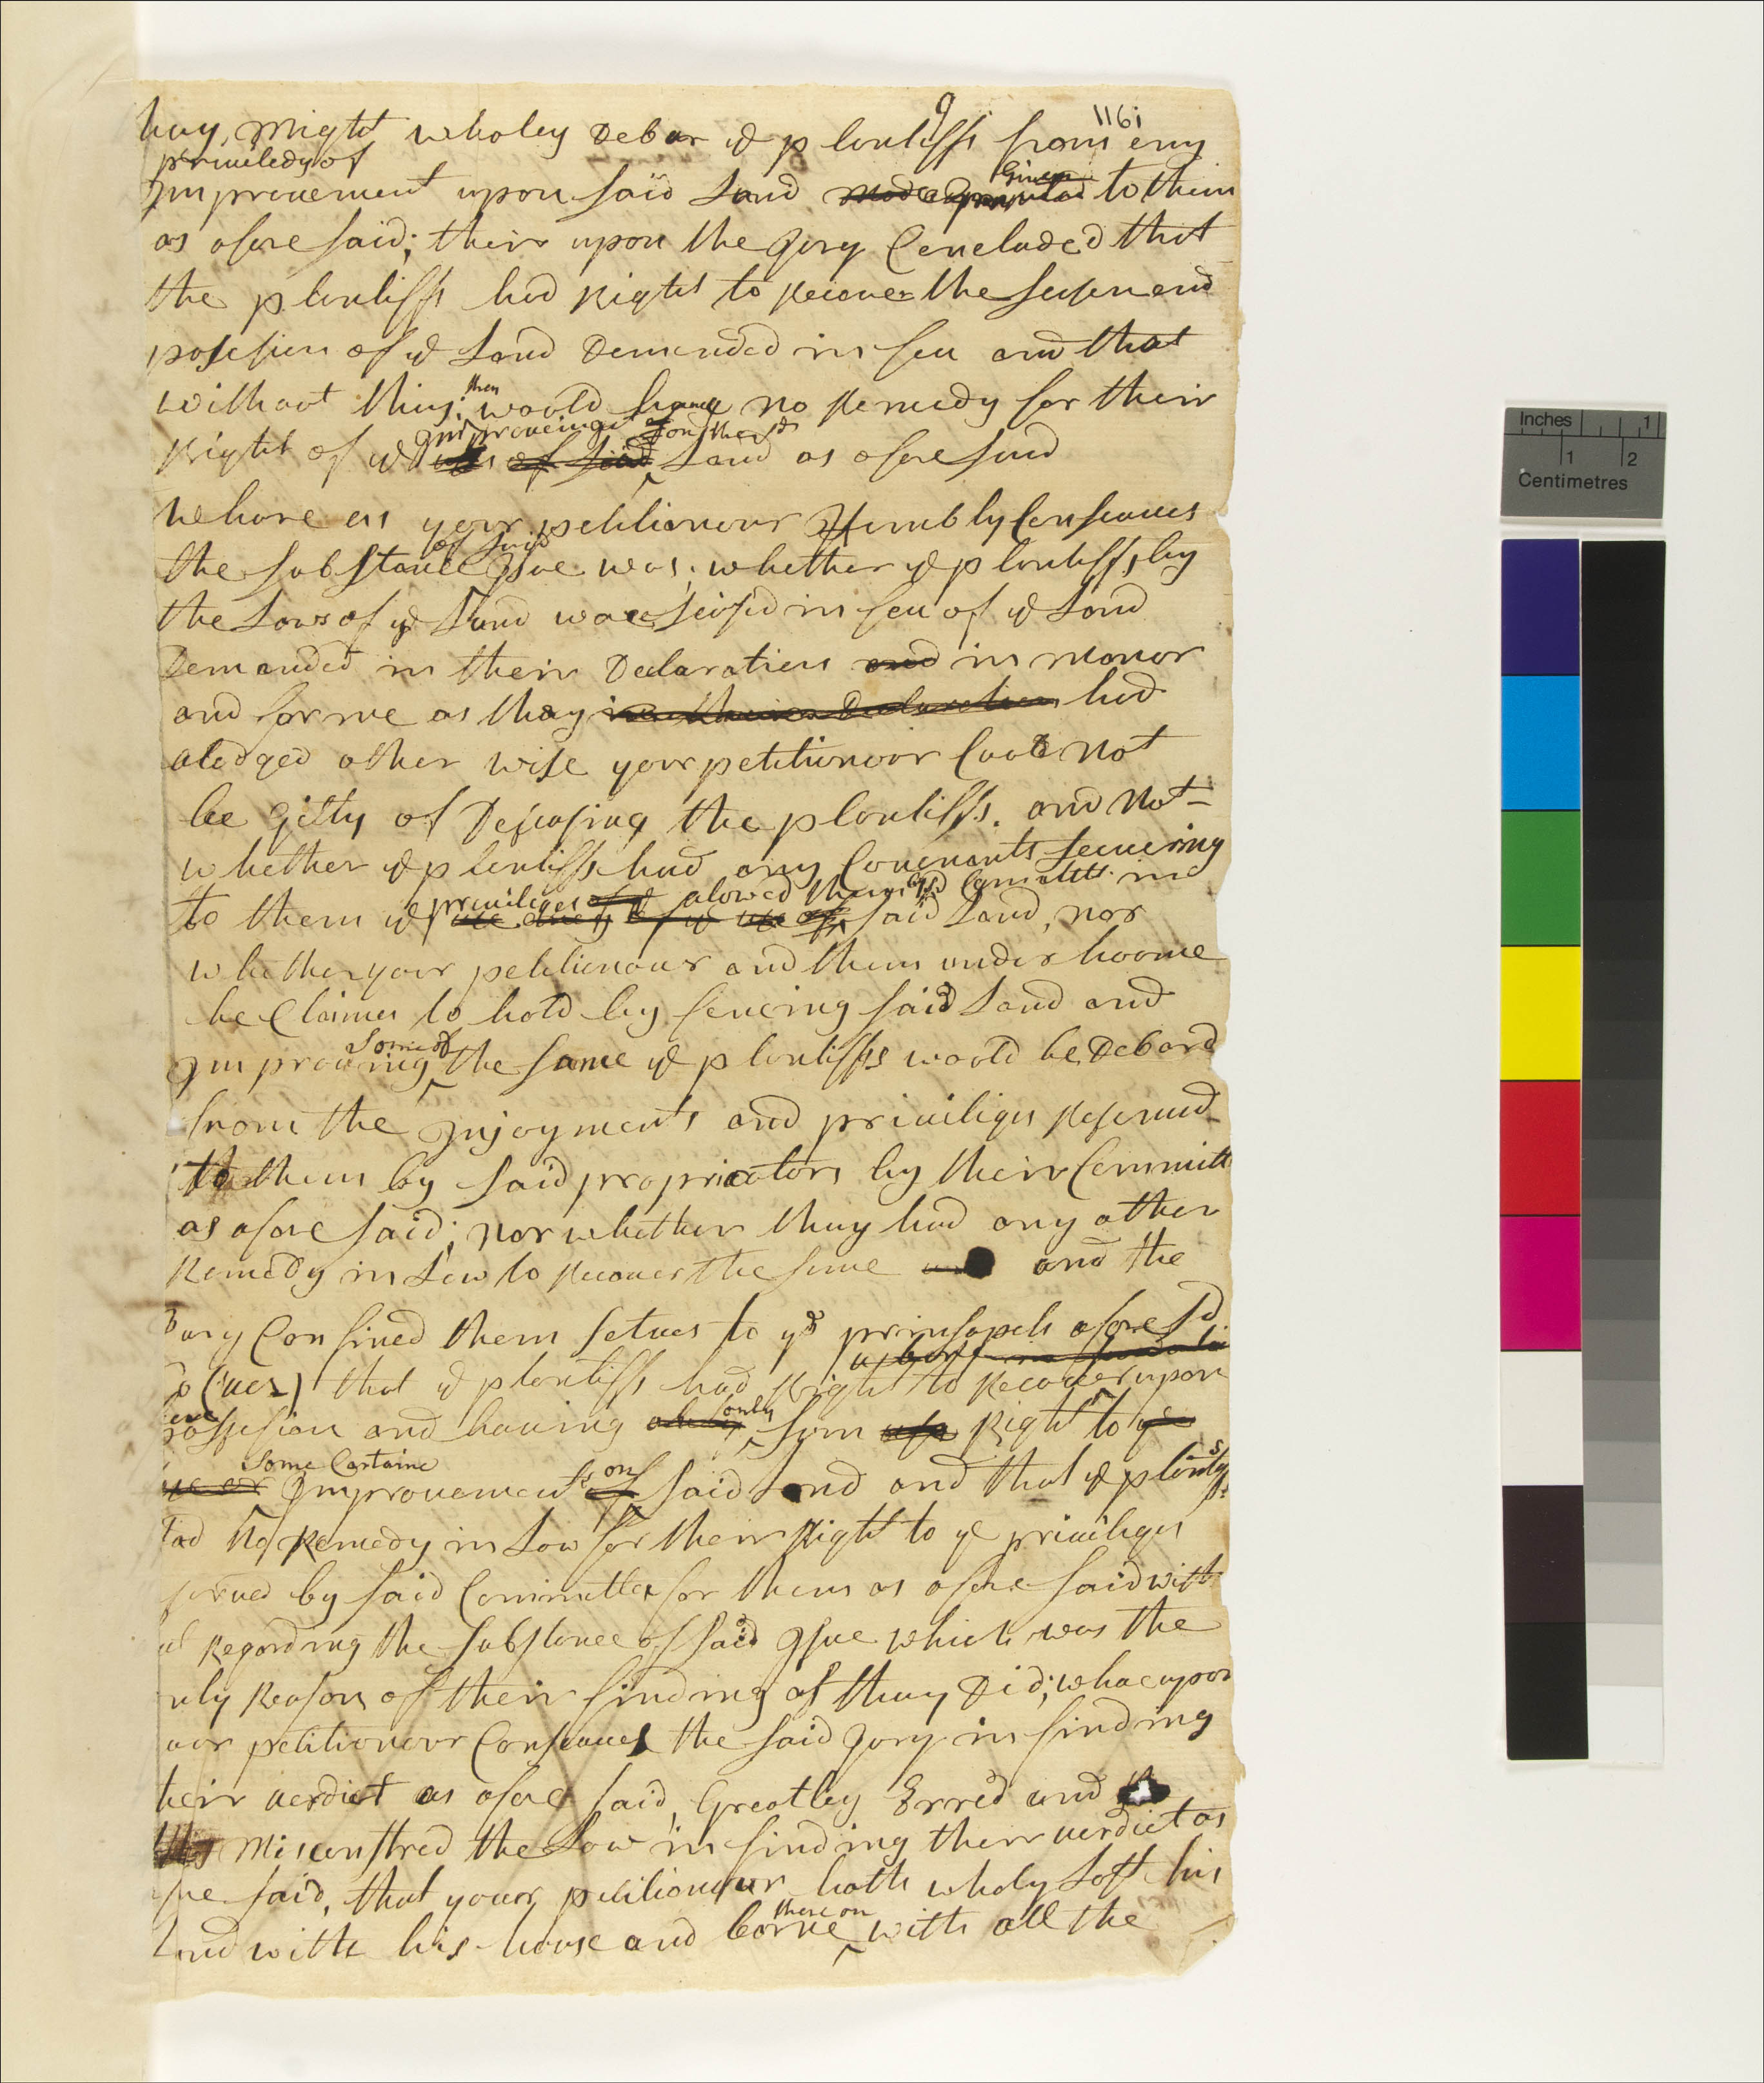 9 116i
thay might wholey Debar ye plantiffs from eny
priviledg of
Improvement upon said Land made Given to them
as afore said; theirupon the Jury Concluded that
the plantiffs had Right to Recover the seisen and
possesion of ye Land Demanded in fee and that
without this; then would have no Remedy for their
Improveing on the sd
Right of ye use of said Land as afore said
whare as your petitionour Humbly Conseaves
of said
the substance Isue was; whether ye plantiffs, by
the Laws of ye Land was seised in fee of ye Land
Demanded in their Declaration and in manor
and forme as thay in their Declaration had
aledged other wise your petitionour Coud not
be Gilty of Deseasing the plantiffs. and Not-
whether ye plantiffs had any Covenants secureing
priviliges alowed them by sd Comittt in
to them ye use of said Land, nor
whether your petitionour and them under hoome
he Claimes to hold by fencing said Land and
some of
Improving the same ye plantiffs would be Debard
from the Injoyments and priviliges Reserved
to them by said propriators by their Committ
as afore said; nor whether thay had any other
Remedy in Law to Recover the same and the
Jury Confined them selves to ye prinsapels afore sd
(viz) that ye plantiffs had Right to Recover upon
possesion and having only sum Right to ye
some Cartaine
Improvements on of said Land and that ye plantifs
had No Remedy in Law for their Right to ye priviliges
served by said Committee for them as afore said with
ut Regarding the substance of said Isue which was the
nly Reason of their finding as thay Did; whareupon
our petitionour Conseaves the said Jury in finding
heir verdict as afore said, Greatley Erred and
Misconstred the Law in finding their verdict as
fore said, that your petitionour hath wholy Lost his
there on
Land with his house and barne with all the